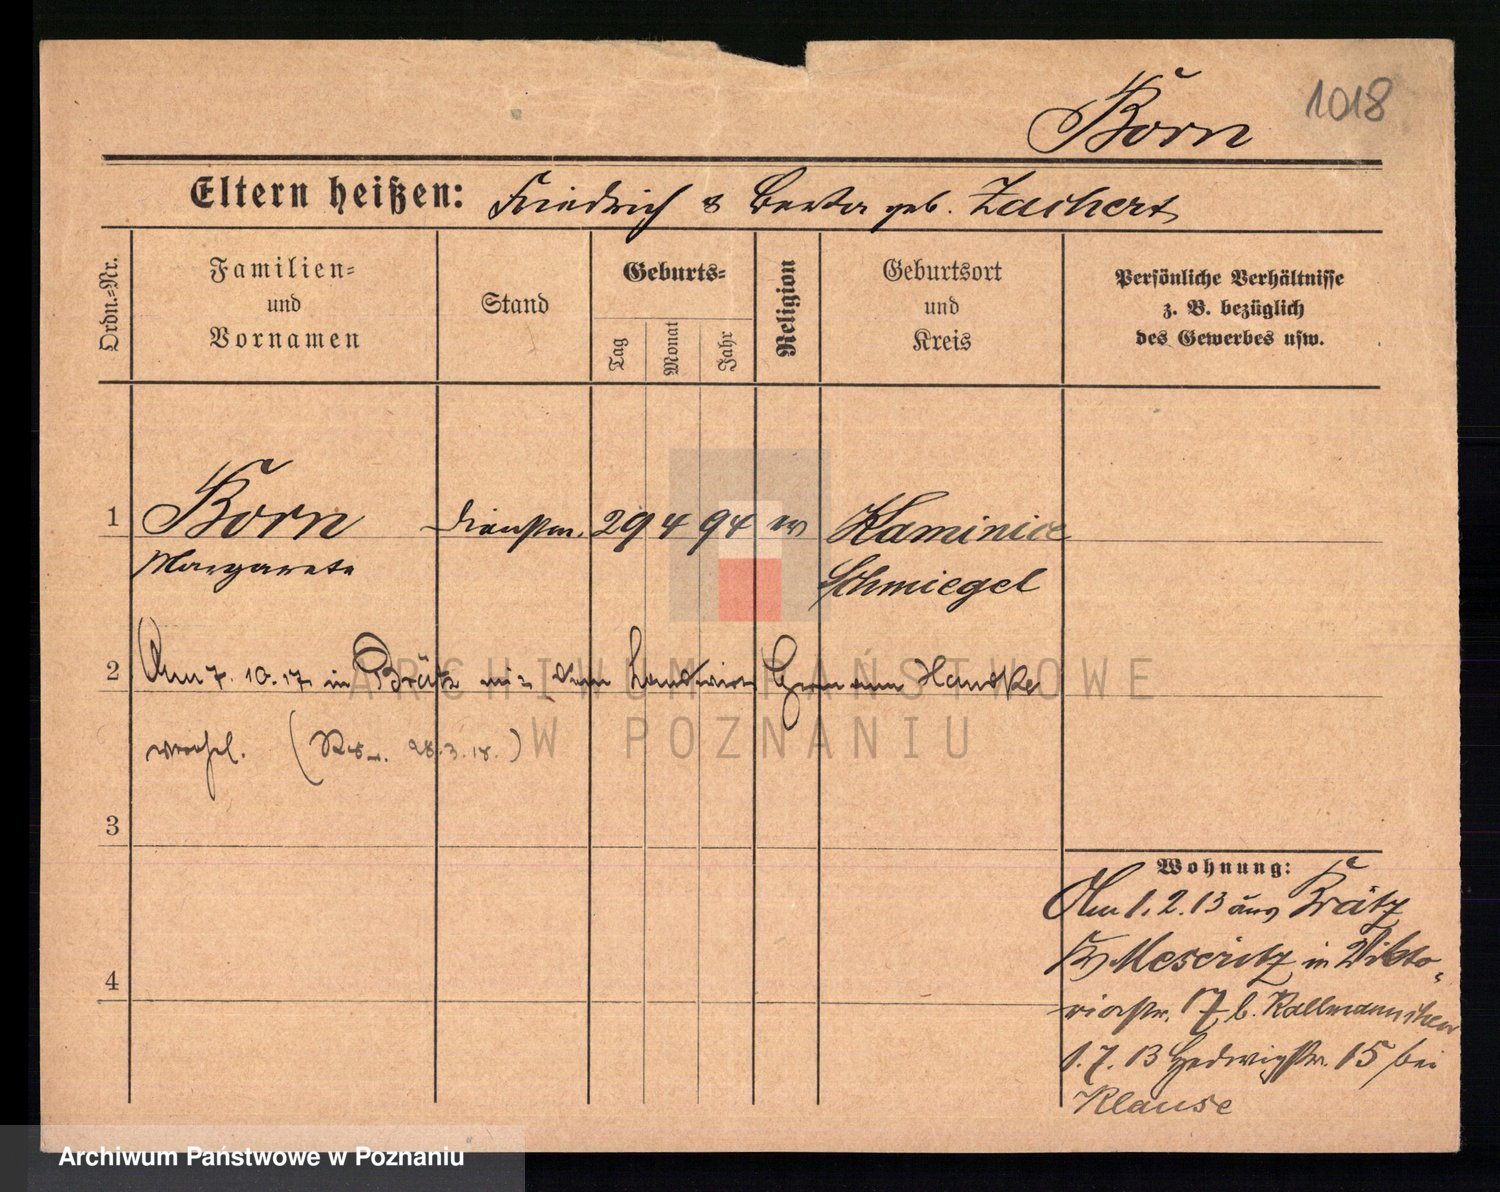 Born
1018
Eltern heißen: Friedrich & Berta geb. Zachert
Ordn.=Nr.
Familien=
und
Vornamen
Stand
Geburts=
Tag
Monat
Jahr
Religion
Geburtsort
und
Kreis
Persönliche Verhältnisse
z. B. bezüglich
des Gewerbes usw.
1 Born Dienstm. 29 4 94 ev Kaminiec
Margarete Schmiegel
2 Am 7. 10. 17 in Brätz mit dem Landwirt Hermann Hanske
verehel. ( 28.3.18.)
3
4
Wohnung:
Am 1. 2. 13 aus Brätz
Kr Meseritz in Vikto-
riastr. 17 b. Kallmannsohn
1. 7. 13 Hedwigstr. 15 bei
Klause
ARCHIWUM PAŃSTWOWE
W POZNANIU
Archiwum Państwowe w Poznaniu